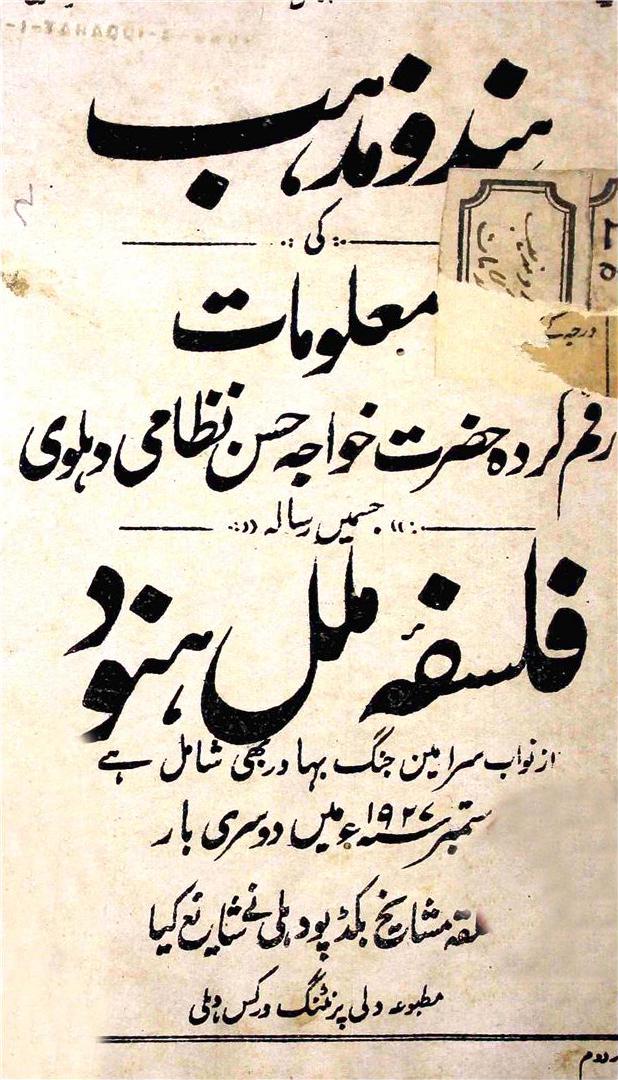 ہندو مذہب
کی
معلومات
رقم کردہ حضرت خواجہ حسن نظامی دہلوی
جسمیں رسالہ
فلسفۂ ملل ہنود
از نواب سر امین جنگ بہادر بھی شامل ہے
ستمبر سنہ ۱۹۲۷ء میں دوسری بار
مشایخ بکڈپو دہلی نے شایع کیا
مطبوعہ دلی پرنٹنگ ورکس دہلی